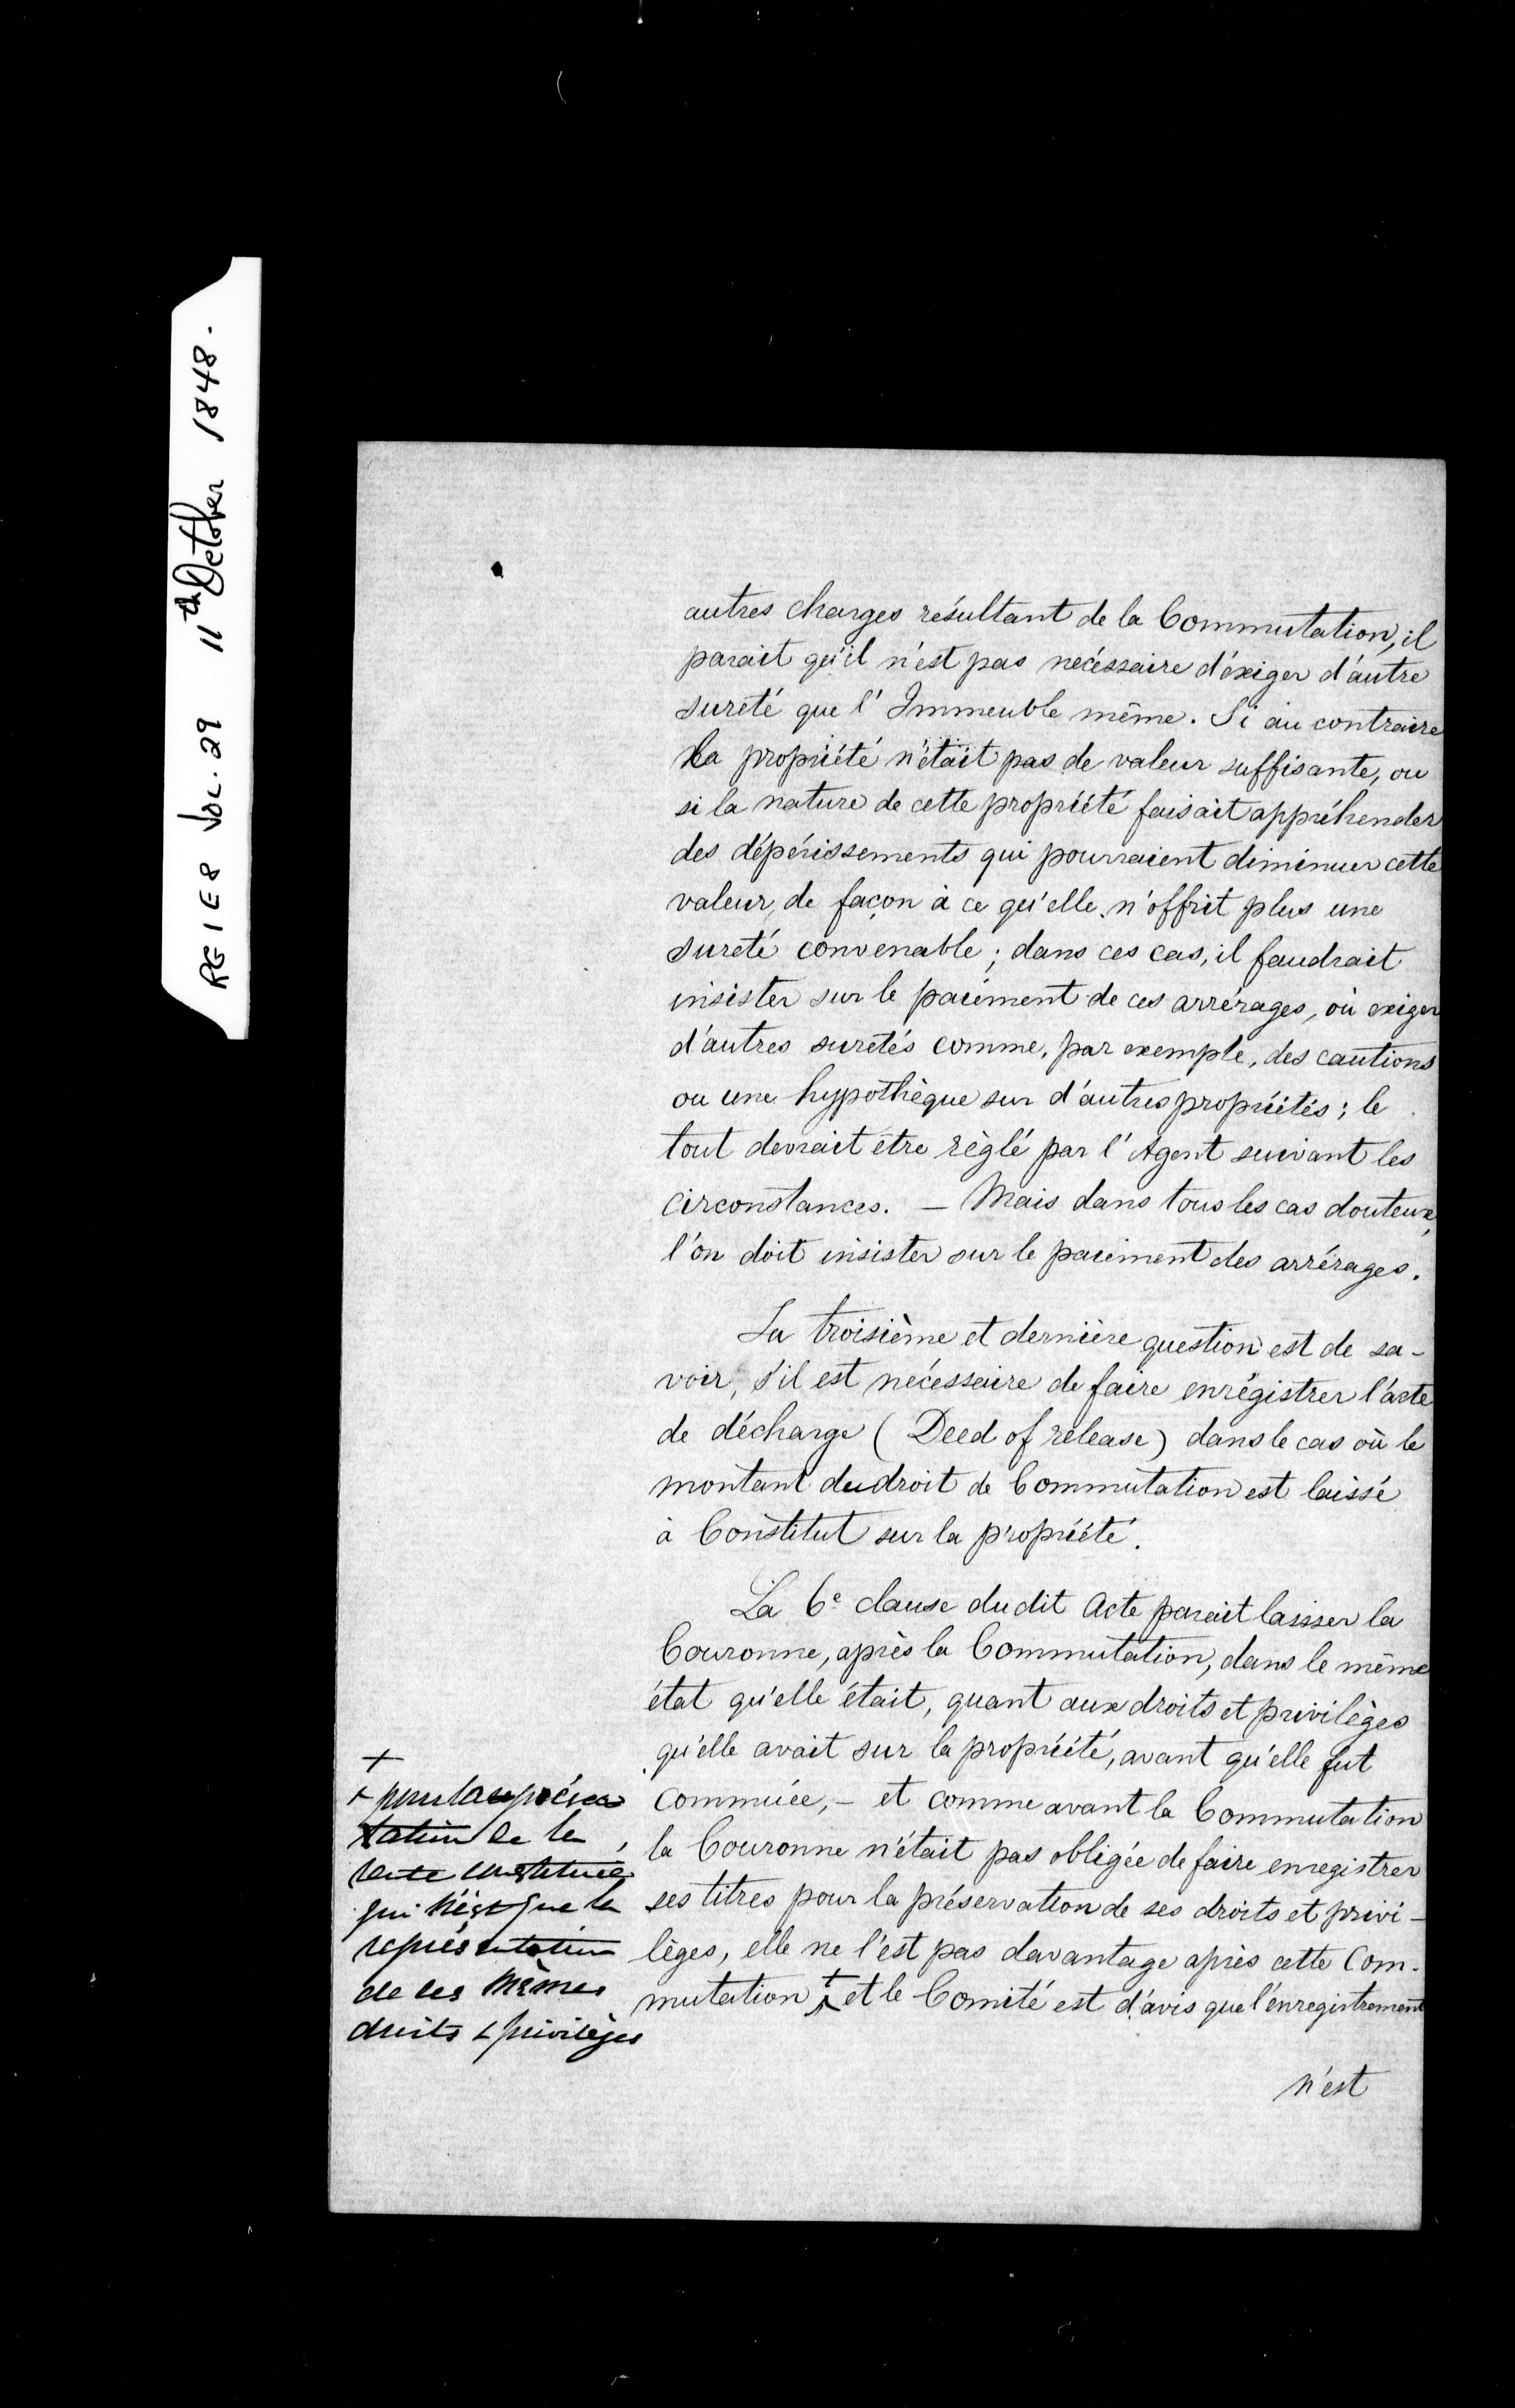 RG 1 E 8 Vol. 29 11th October 1848.
autres charges résultant de la Commutation, il
parait qu'il n'est pas nécessaire d'éxiger d'autre
sureté que l'Immeuble même. Si au contraire
la propriété n'était pas de valeur suffisante, ou
si la nature de cette propriété faisait appréhender
des dépérissements qui pourraient diminuer cette
valeur, de façon à ce qu'elle n'offrit plus une
sureté convenable ; dans ces cas, il faudrait
insister sur le paiement de ces arrérages, où exiger
d'autres suretés comme, par exemple, des cautions
ou une hypothèque sur d'autres propriétés ; le
tout devrait être règlé par l'Agent suivant les
circonstances. — Mais dans tous les cas douteux,
l'on doit insister sur le paiement des arrérages.
La troisième et dernière question est de sa-
voir, s'il est nécessaire de faire enrégistrer l'acte
de décharge (Deed of release) dans le cas où le
montant du droit de Commutation est laissé
à Constitut sur la propriété.
La 6e clause du dit Acte parait laisser la
Couronne, après la Commutation, dans le même
état qu'elle était, quant aux droits et privilèges
qu'elle avait sur la propriété, avant qu'elle fut
commuée, — et comme avant la Commutation
la Couronne n'était pas obligée de faire enregistrer
ses titres pour la préservation de ses droits et privi-
lèges, elle ne l'est pas davantage après cette Com-
mutation + et le Comité est d'avis que l'enregistrement
n'est
+
+ pour la préser
vation de la
rente constituée
qui n'est que la
représentation
de ces mêmes
droits & privilèges